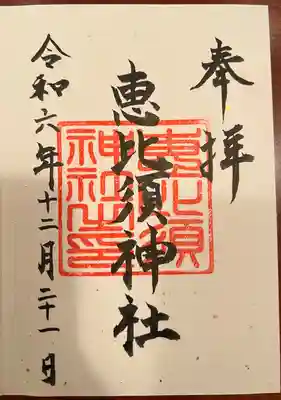 奉拝
恵比須神社
恵比須
神社之印
令和六年十二月二十一日